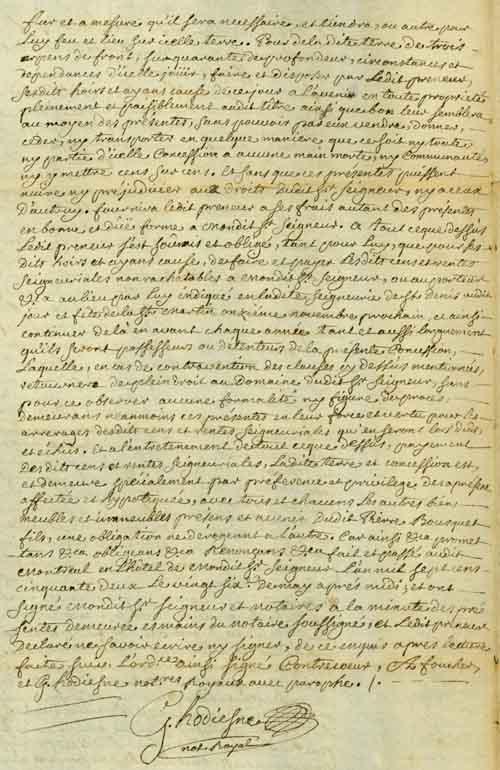 fur et a mesure qu'il sera necessaire, et tiendra, ou autre pour
Luy feu et lieu sur icelle terre. Pour de la dite terre de trois
arpens de front, sur quarante de profondeur, circonstances et
dependances d'icelle jouir, faire et disposer par Ledit preneur,
sesdits hoirs et ayans cause de ce jour a l'avenir en toute propriete
pleinement et paisiblement audit titre ainsi que bon leur semblera
au moyen des presentes, sans pouvoir par eux vendre, donner,
ceder, ny transporter en quelque maniere que ce soit ny toute
ny partie d'icelle Concession a aucune main morte, ny Communauté
ny y mettre cens sur cens, et sans que ces presentes puissent
nuire ny prejudicier aux droits dudit Sr. Seigneur, ny a ceux
d'autruy. fournira ledit preneur a ses frais autant des presentes
en bonne et düe forme a mondit Sr. Seigneur. a tout ce que dessus
Ledit preneur s'est soumis et obligé, tant pour Luy, que pour ses
dits hoirs et ayans cause, de faire et payer lesdits cens et rentes
Seigneuriales non rachetables a mondit Sr. Seigneur, ou au porteur
&ca au lieu par luy indiqué en ladite Seigneurie de St. denis audit
jour et fête de la St. martin onzième novembre prochain, et ainsi
continuer de la en avant chaque année tant et aussi longuement
qu'ils seront possesseurs ou detenteurs de la presente Concession,
Laquelle, en cas de contravention des clauses cy dessus mentionnés,
retournera de plein droit au Domaine dudit Sr. Seigneur, sans
pour ce observer aucune formalité ny figure de procès,
demeurans neanmoins ces presentes en leur force et vertu pour les
arrerages desdits cens et rentes Seigneuriales qu'en seront lors dûs
et echus, et a l'entretenement de tout ce que dessus, payement
Desdits cens et rentes Seigneuriales, Ladite terre et concession est,
et demeure specialement par préférence et privilege des apresent
affectée et hypotequée, avec tous et chacuns les autres biens
meubles et immeubles presens et avenir dudit Pierre Bousquet
fils, une obligation ne derogeant a l'autre. Car ainsi &ca promet
tans &ca obligeans &ca Renonçans &ca fait et passé audit
Montreal en L'hôtel de mondit Sr. Seigneur L'an mil sept cens
cinquante deux Le vingt six e. de may après midi, et ont
signé mondit Sr. Seigneur et notaires à la minute des pré
sentes demeurée es mains du notaire soussigné, et Ledit preneur
Declaré ne savoir écrire ny signer, de ce enquis après lecture
faite suiv. L'ord ce ainsi signé Contrecoeur, foucher
et G. hodiesne notres royaux avec paraphe. /.
G. hodiesne
not. Royal